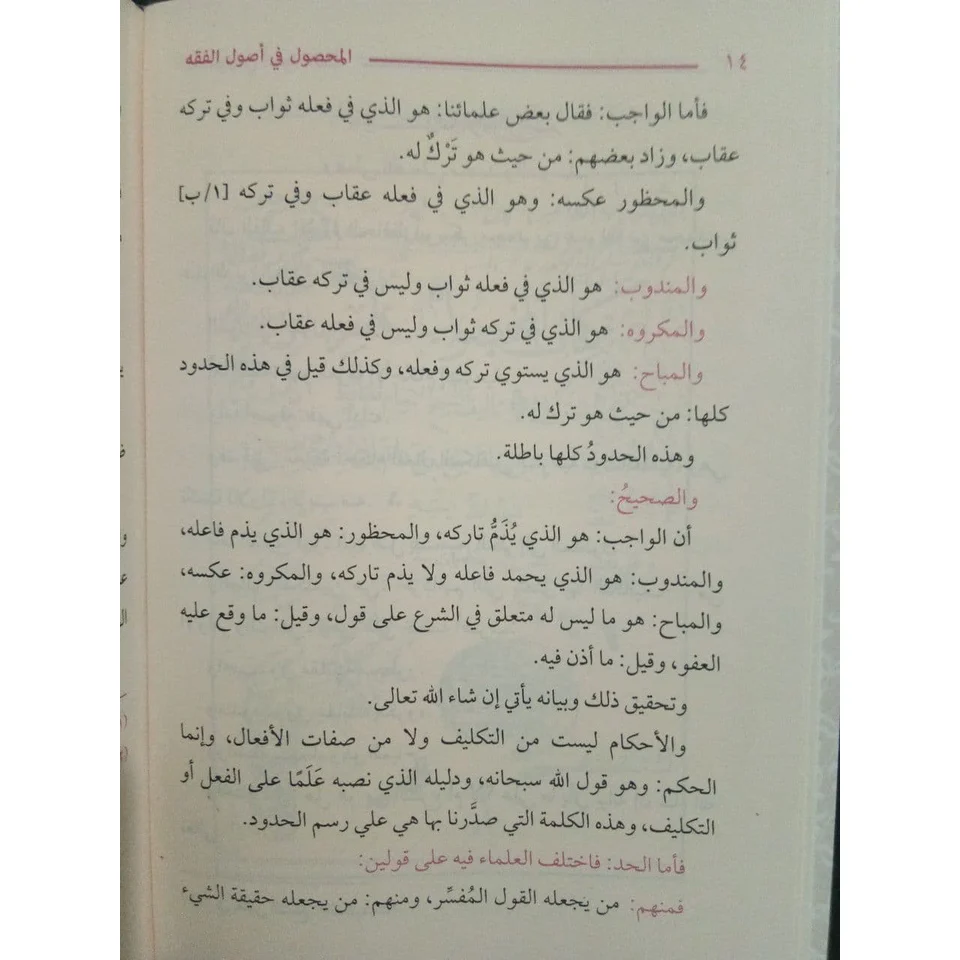 ١٤ المحصول في أصول الفقه
فأما الواجب: فقال بعض علمائنا: هو الذي في فعله ثواب وفي تركه
عقاب، وزاد بعضهم: من حيث هو تَرْكٌ له.
والمحظور عكسه: وهو الذي في فعله عقاب وفي تركه [١/ب]
ثواب.
والمندوب: هو الذي في فعله ثواب وليس في تركه عقاب.
والمكروه: هو الذي في تركه ثواب وليس في فعله عقاب.
والمباح: هو الذي يستوي تركه وفعله، وكذلك قيل في هذه الحدود
كلها: من حيث هو ترك له.
وهذه الحدودُ كلها باطلة.
والصحيحُ:
أن الواجب: هو الذي يُذَمُّ تاركه، والمحظور: هو الذي يذم فاعله،
والمندوب: هو الذي يحمد فاعله ولا يذم تاركه، والمكروه: عكسه،
والمباح: هو ما ليس له متعلق في الشرع على قول، وقيل: ما وقع عليه
العفو، وقيل: ما أذن فيه.
وتحقيق ذلك وبيانه يأتي إن شاء الله تعالى.
والأحكام ليست من التكليف ولا من صفات الأفعال، وإنما
الحكم: وهو قول الله سبحانه، ودليله الذي نصبه عَلَمًا على الفعل أو
التكليف، وهذه الكلمة التي صدَّرنا بها هي علي رسم الحدود.
فأما الحد: فاختلف العلماء فيه على قولين:
فمنهم: من يجعله القول المُفسِّر، ومنهم: من يجعله حقيقة الشيء